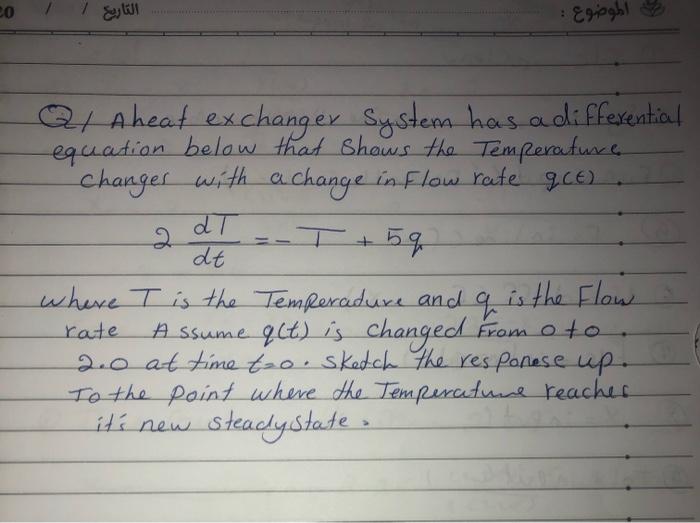 20 / / التاريخ
الموضوع :
Q1/ A heat exchanger System has a differential
equation below that Shows the Temperature
Changes with a change in Flow rate q(t) .
2 dT/dt = - T + 5q
where T is the Temperadure and q is the Flow
rate Assume q(t) is changed From 0 to
2.0 at time t=0 . Sketch the responese up.
To the point where the Temperature reaches
it's new steadystate .